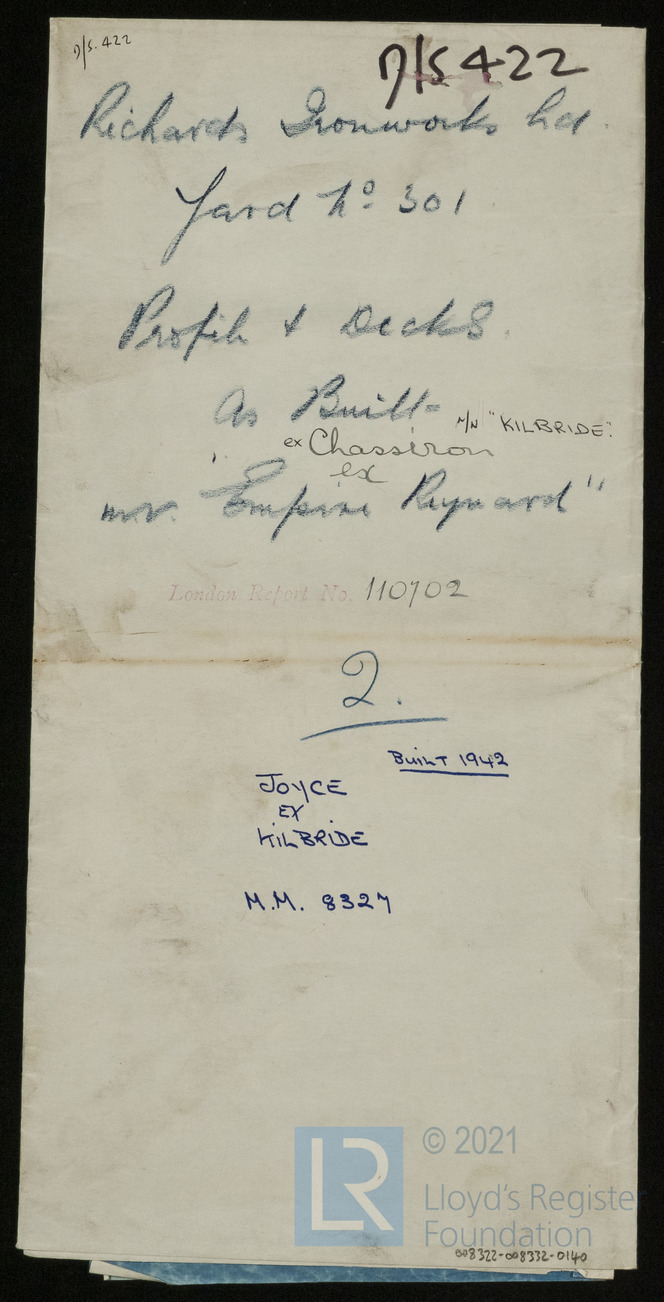 D/S.422
D/S 422
Richards Ironworks Ltd.
Yard No 301
Profile & Decks.
As Built
M/N "KILBRIDE".
ex Chassiron
ex
m.v. "Empire Reynard"
London Report No. 110702
2.
BUILT 1942
JOYCE
EX
KILBRIDE
M.M. 8327
LR
© 2021
Lloyd's Register
Foundation
008322-008332-0140